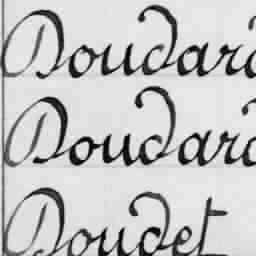 Doudard
Doudard
Doudet